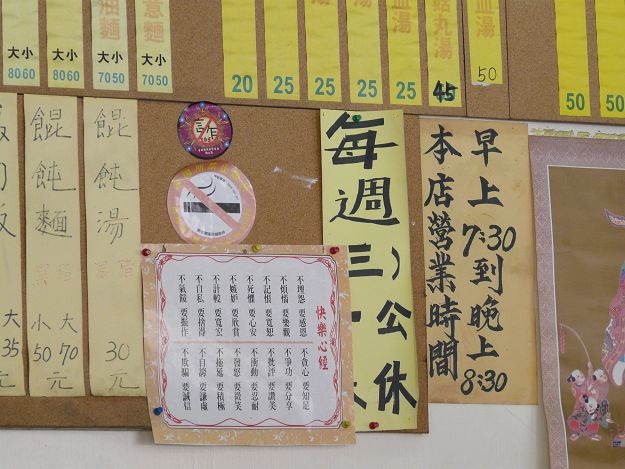 油麵
意麵
大小
8060
大小
8060
大小
7050
大小
7050
20
25
25
25
25
湯
湯
湯
湯
血湯
丸湯
45
血湯
50
50
50
大
35
餛飩麵
小 大
50 70
元
餛飩湯
30
元
每週三
公休
早上7:30到晚上8:30
本店營業時間
快樂心經
不埋怨 要感恩
不煩惱 要樂觀
不記恨 要寬恕
不死懼 要心安
不嫉妒 要欣賞
不計較 要寬宏
不自私 要捨得
不氣餒 要振作
不貪心 要知足
不爭功 要分享
不批評 要讚美
不衝動 要忍耐
不發怒 要微笑
不拖延 要積極
不自誇 要謙虛
不欺騙 要誠信